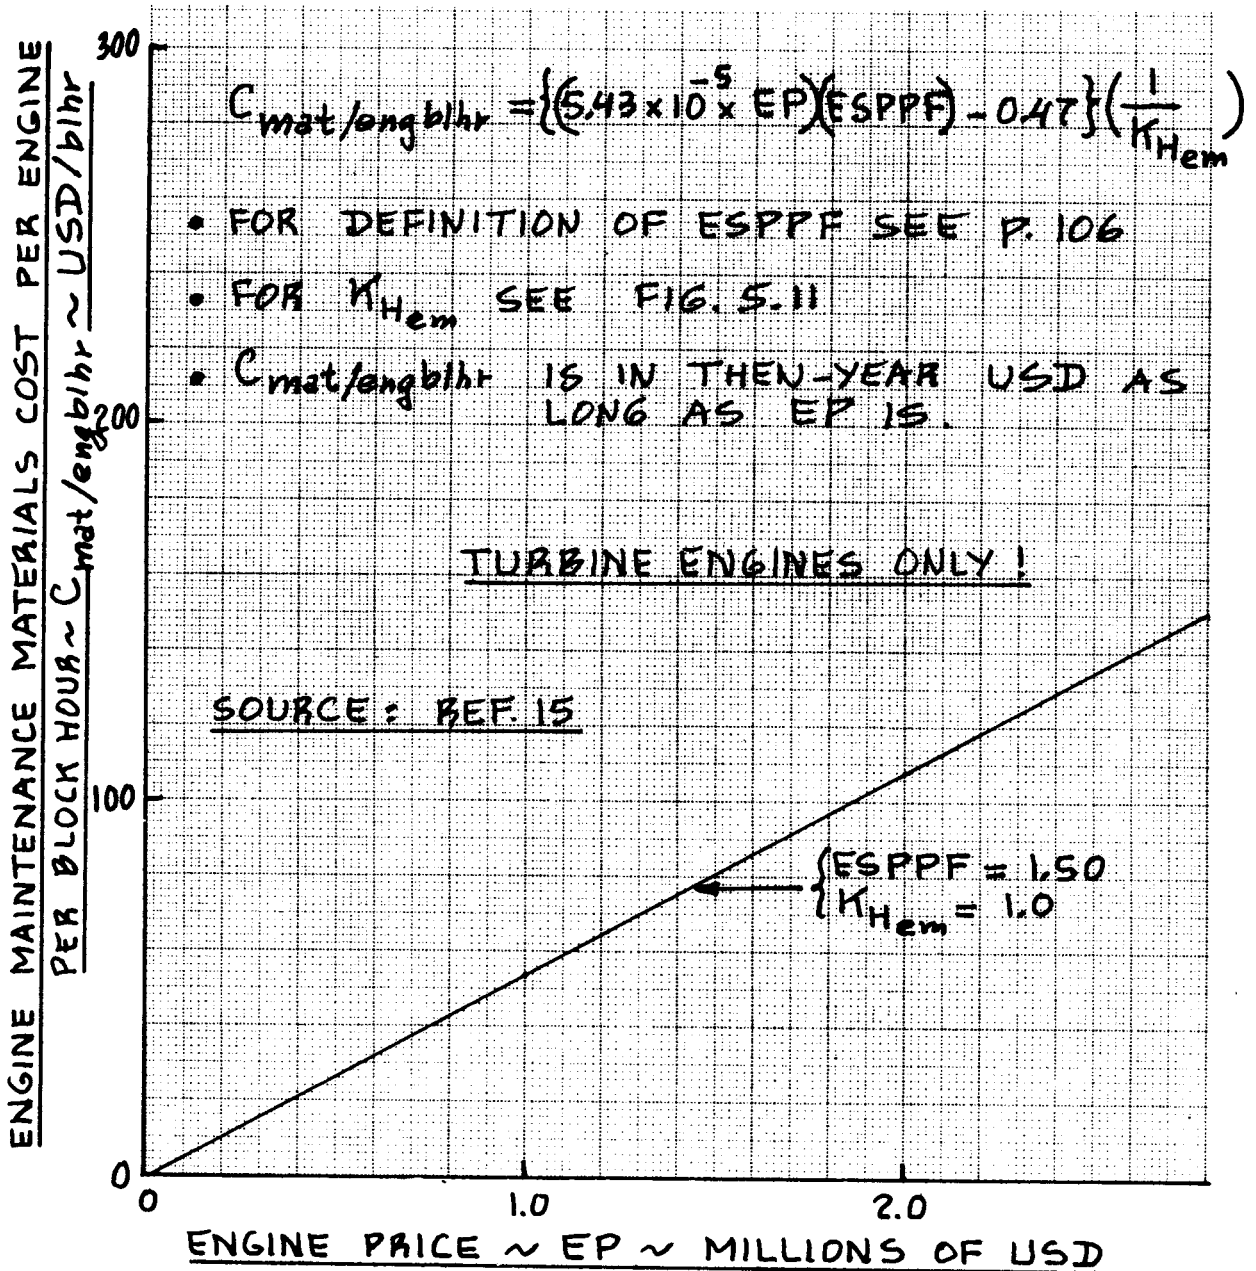 ENGINE MAINTENANCE MATERIALS COST PER ENGINE
PER BLOCK HOUR ~ C mat/eng blhr ~ USD/blhr
300
C mat/eng blhr = {(5.43 x 10^-5 x EP)(ESPPF) - 0.47}(1/K Hem)
• FOR DEFINITION OF ESPPF SEE P. 106
• FOR K Hem SEE FIG. 5.11
• C mat/eng blhr IS IN THEN-YEAR USD AS
LONG AS EP IS.
200
TURBINE ENGINES ONLY!
SOURCE: REF. 15
100
{ESPPF = 1.50
{K Hem = 1.0
0
0 1.0 2.0
ENGINE PRICE ~ EP ~ MILLIONS OF USD